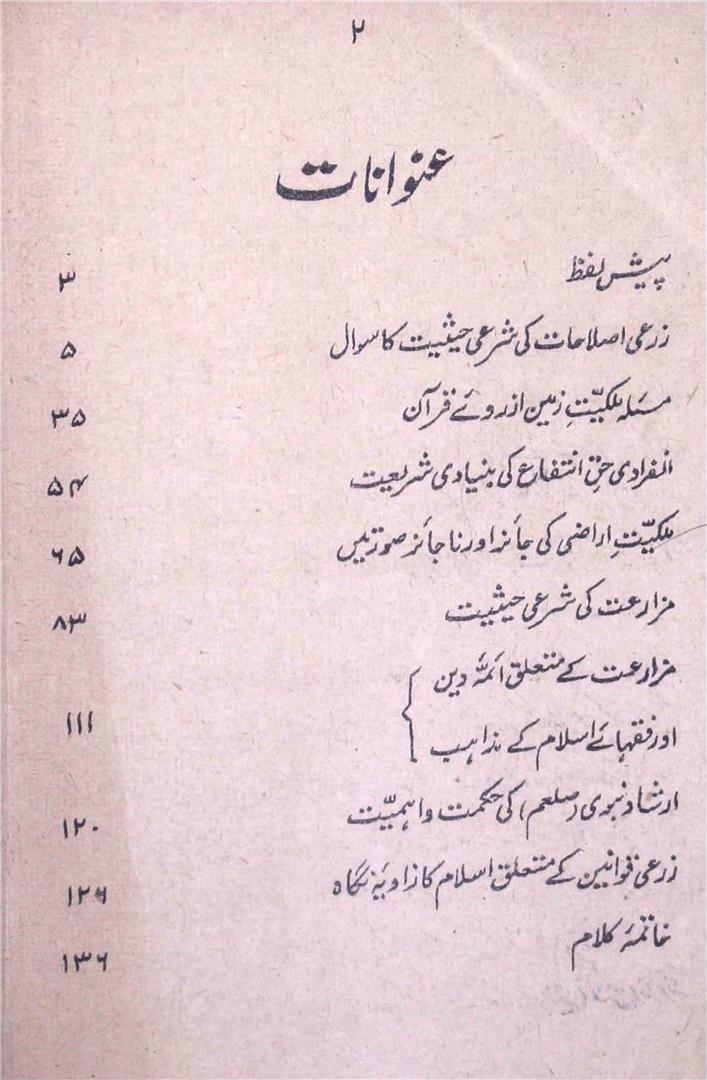 ۲
عنوانات
پیش لفظ ۳
زرعی اصلاحات کی شرعی حیثیت کا سوال ۵
مسئلہ ملکیّتِ زمین ازروئے قرآن ۳۵
انفرادی حقِ انتفاع کی بنیادی شریعت ۵۴
ملکیّتِ اراضی کی جائز اور ناجائز صورتیں ۶۵
مزارعت کی شرعی حیثیت ۸۳
مزارعت کے متعلق ائمۂ دین
اور فقہائے اسلام کے مذاہب ۱۱۱
ارشاد نبوی (صلعم) کی حکمت و اہمیّت ۱۲۰
زرعی قوانین کے متعلق اسلام کا زاویۂ نگاہ ۱۲۶
خاتمۂ کلام ۱۳۶